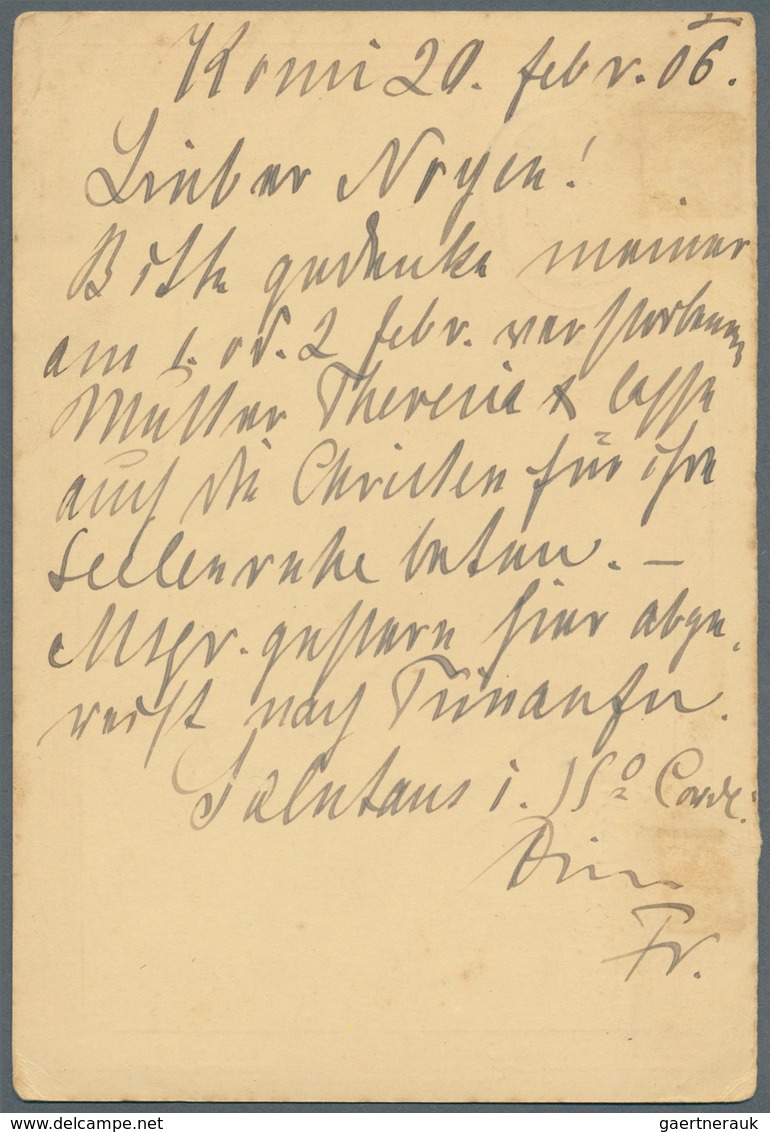 Komi 20. Febr. 06.
Lieber Noyen!
Bitte gedenke meiner
am 1. od. 2 Febr. verstorbenen
Mutter Theresia & lasse
auch die Christen für ihre
Seelenruhe beten. –
Msgr. gestern hier abge-
reist nach
Salutans i. SSo Corde.
Dein
Fr.
delcampe.net
gaertnerauk